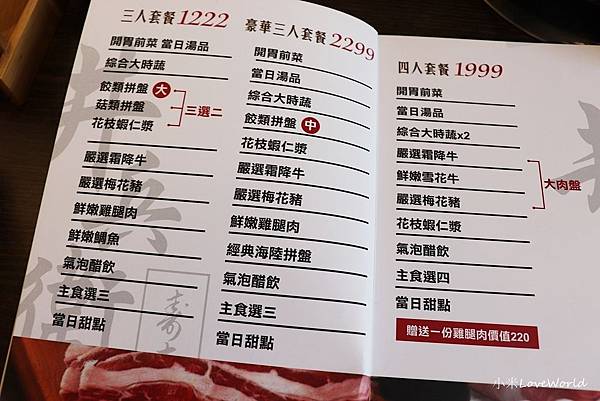 三人套餐 1222
開胃前菜 當日湯品
綜合大時蔬
餃類拼盤 大
菇類拼盤
花枝蝦仁漿
三選二
嚴選霜降牛
嚴選梅花豬
鮮嫩雞腿肉
鮮嫩鯛魚
氣泡醋飲
主食選三
當日甜點
豪華三人套餐 2299
開胃前菜
當日湯品
綜合大時蔬
餃類拼盤 中
花枝蝦仁漿
嚴選霜降牛
嚴選梅花豬
鮮嫩雞腿肉
經典海陸拼盤
氣泡醋飲
主食選三
當日甜點
四人套餐 1999
開胃前菜
當日湯品
綜合大時蔬x2
嚴選霜降牛
鮮嫩雪花牛
嚴選梅花豬
大肉盤
花枝蝦仁漿
氣泡醋飲
主食選四
當日甜點
贈送一份雞腿肉價值220
井兵衛
小米LoveWorld